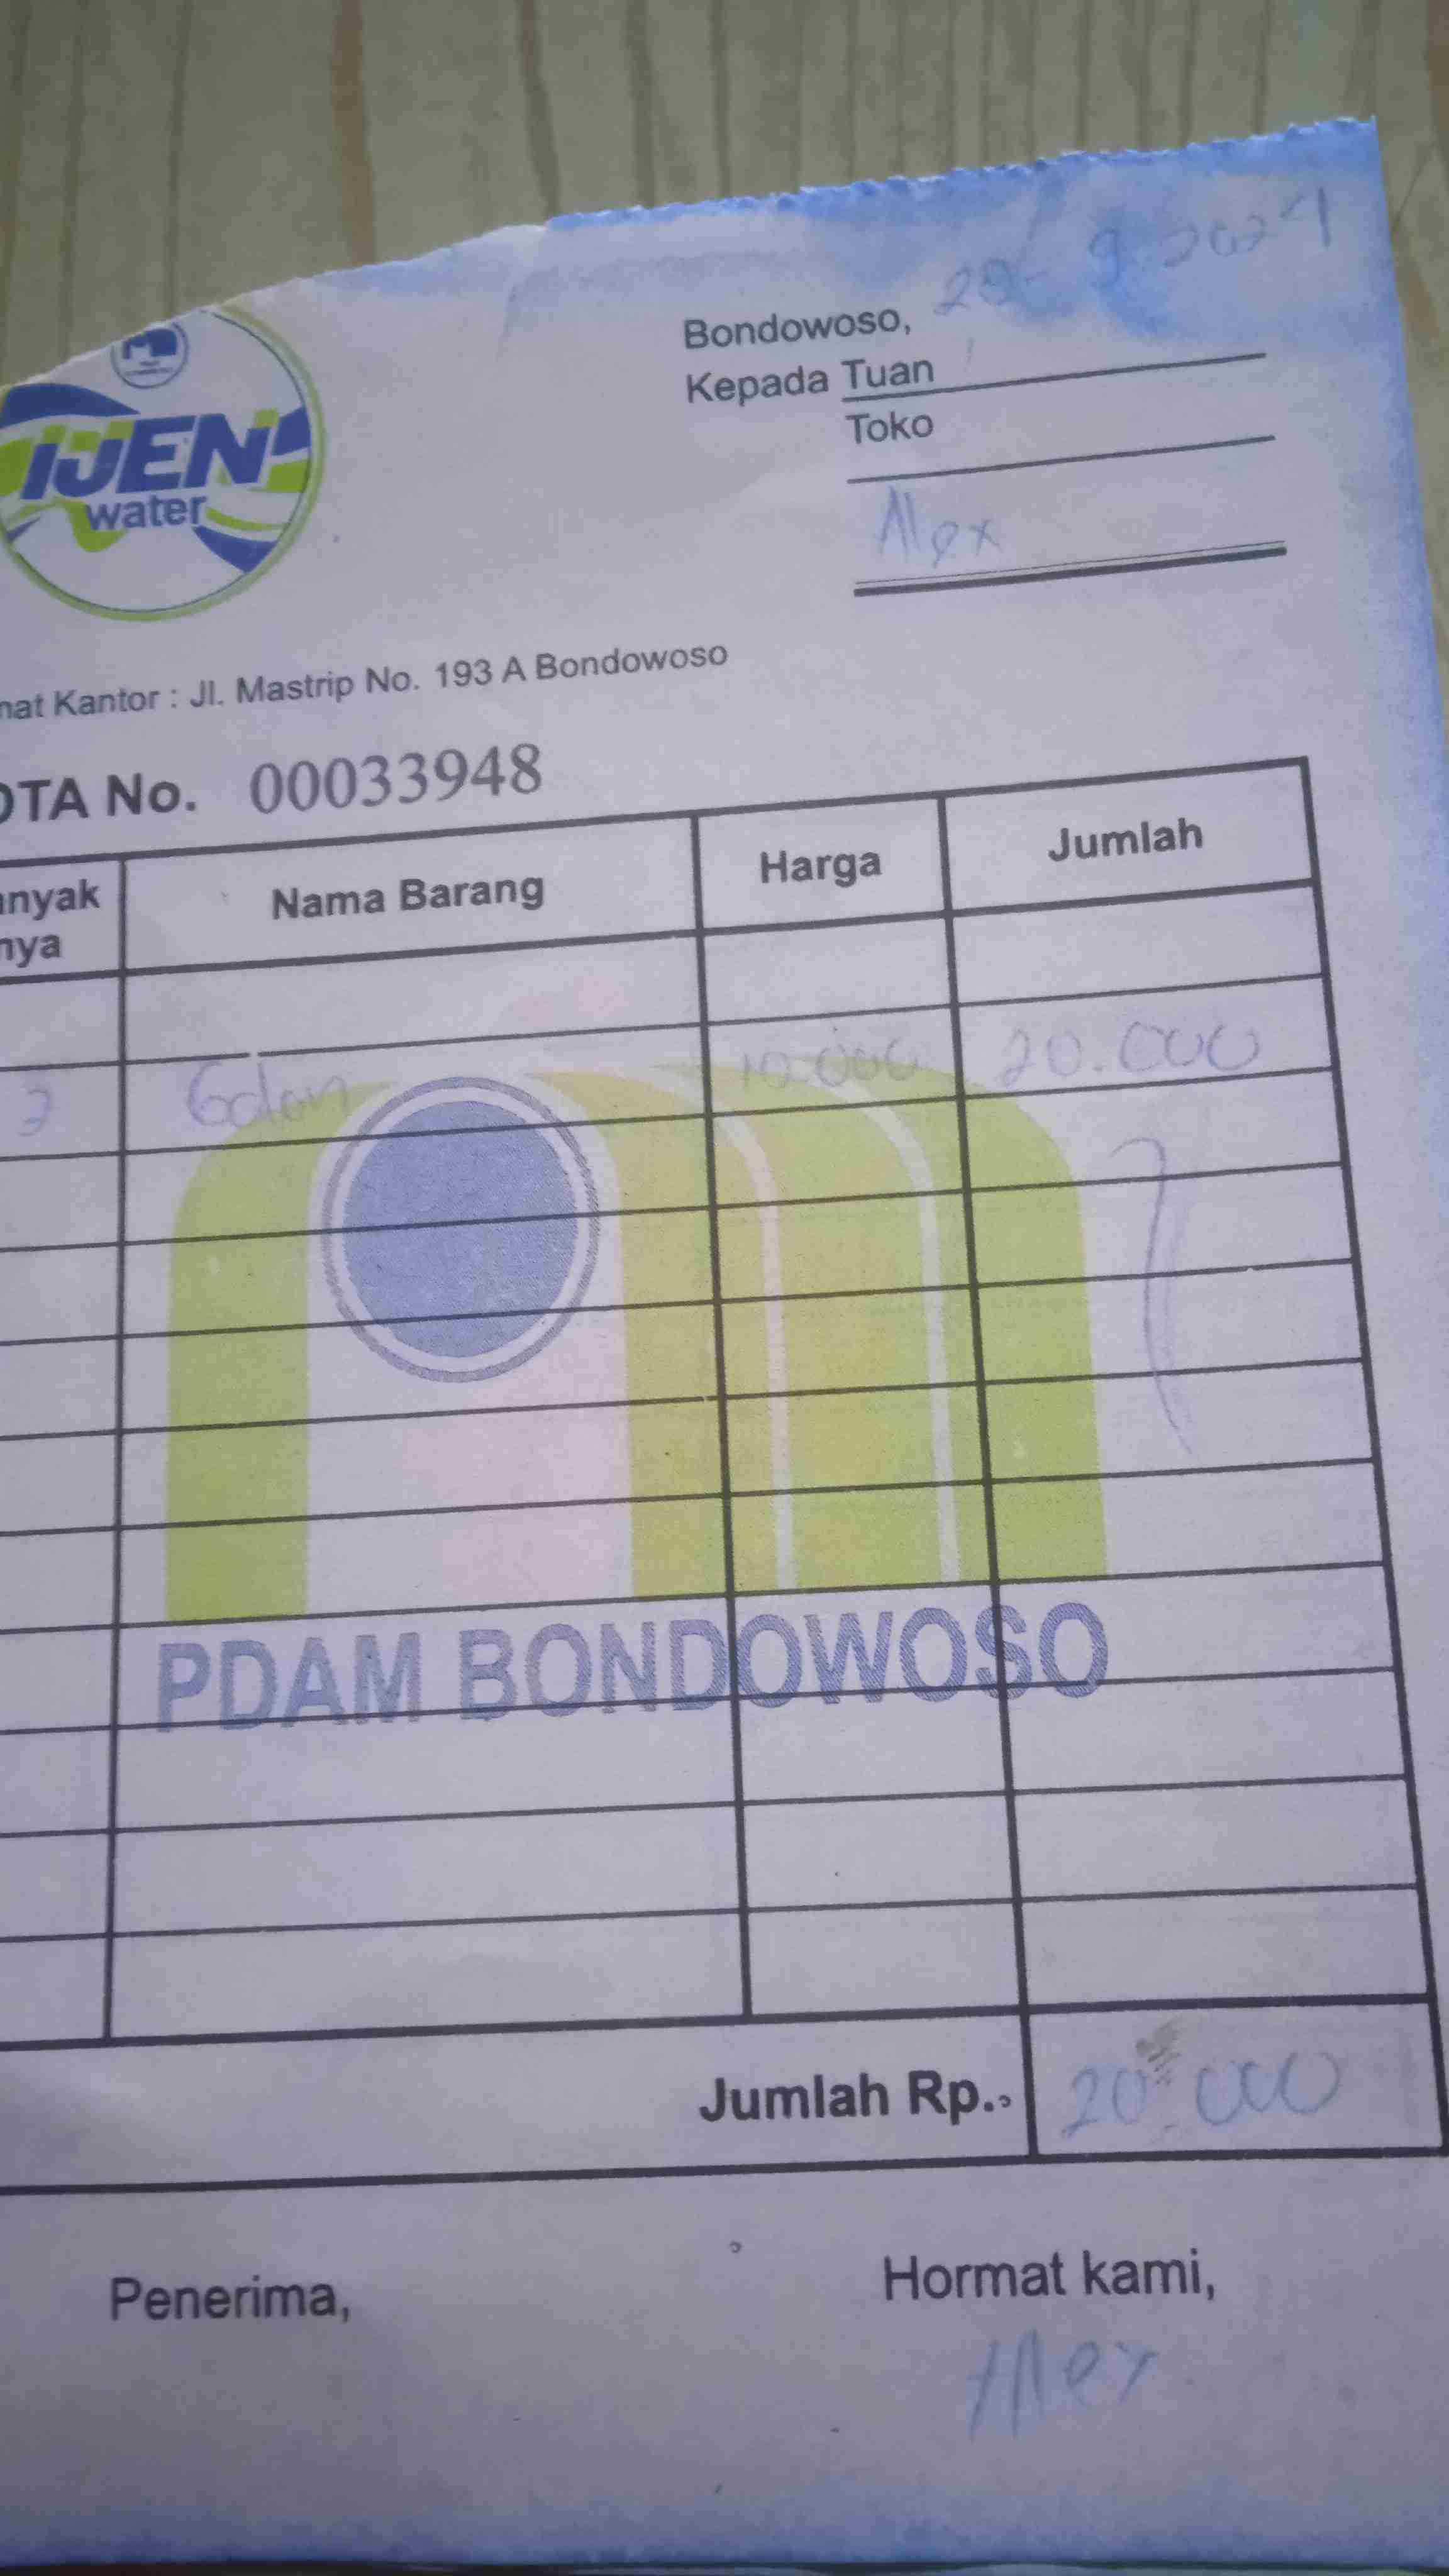 IJEN
water
Bondowoso, 2024
Kepada Tuan
Toko
Alex
mat Kantor : Jl. Mastrip No. 193 A Bondowoso
OTA No. 00033948
anyak
nya
Nama Barang
Harga
Jumlah
2 Galon 10.000 20.000
PDAM BONDOWOSO
Jumlah Rp. 20.000
Penerima,
Hormat kami,
Alex